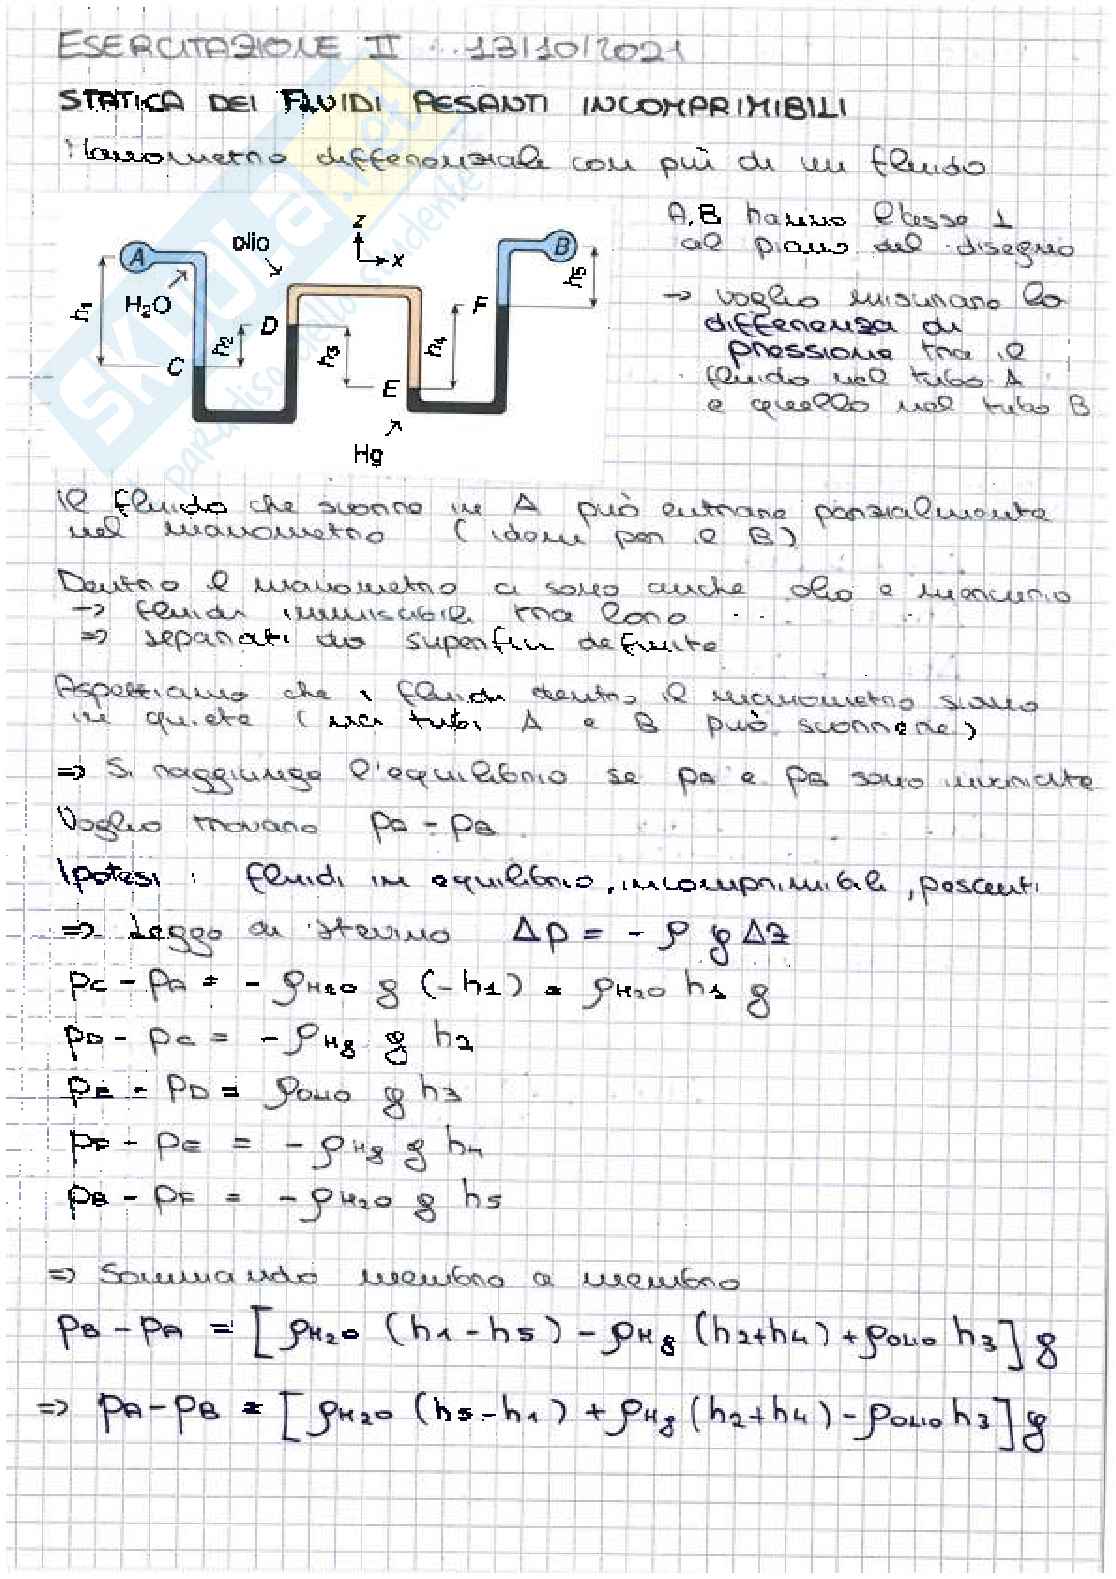 ESERCITAZIONE II 13/10/2021
STATICA DEI FLUIDI PESANTI INCOMPRIMIBILI
Manometro differenziale con più di un fluido
A, B hanno l'asse ⊥
al piano del disegno
→ voglio misurare la
differenza di
pressione tra il
fluido nel tubo A
e quello nel tubo B
A
H₂O
h₁
C
h₂
olio
D
z
x
h₃
E
Hg
h₄
F
B
h₅
il fluido che scorre in A può entrare parzialmente
nel manometro (idem per il B)
Dentro il manometro ci sono anche olio e mercurio
→ fluidi immiscibili tra loro
⇒ separati da superfici definite
Aspettiamo che i fluidi dentro il manometro siano
in quiete (nei tubi A e B può scorrere)
⇒ Si raggiunge l'equilibrio se pA e pB sono
Voglio trovare pA - pB
Ipotesi : fluidi in equilibrio, incomprimibili, pesanti
⇒ Legge di Stevino Δp = - ρ g Δz
pC - pA = - ρH₂O g (-h₁) = ρH₂O h₁ g
pD - pC = - ρHg g h₂
pE - pD = ρOLIO g h₃
pF - pE = - ρHg g h₄
pB - pF = - ρH₂O g h₅
⇒ Sommando membro a membro
pB - pA = [ρH₂O (h₁ - h₅) - ρHg (h₂+h₄) + ρOLIO h₃] g
⇒ pA - pB = [ρH₂O (h₅ - h₁) + ρHg (h₂+h₄) - ρOLIO h₃] g